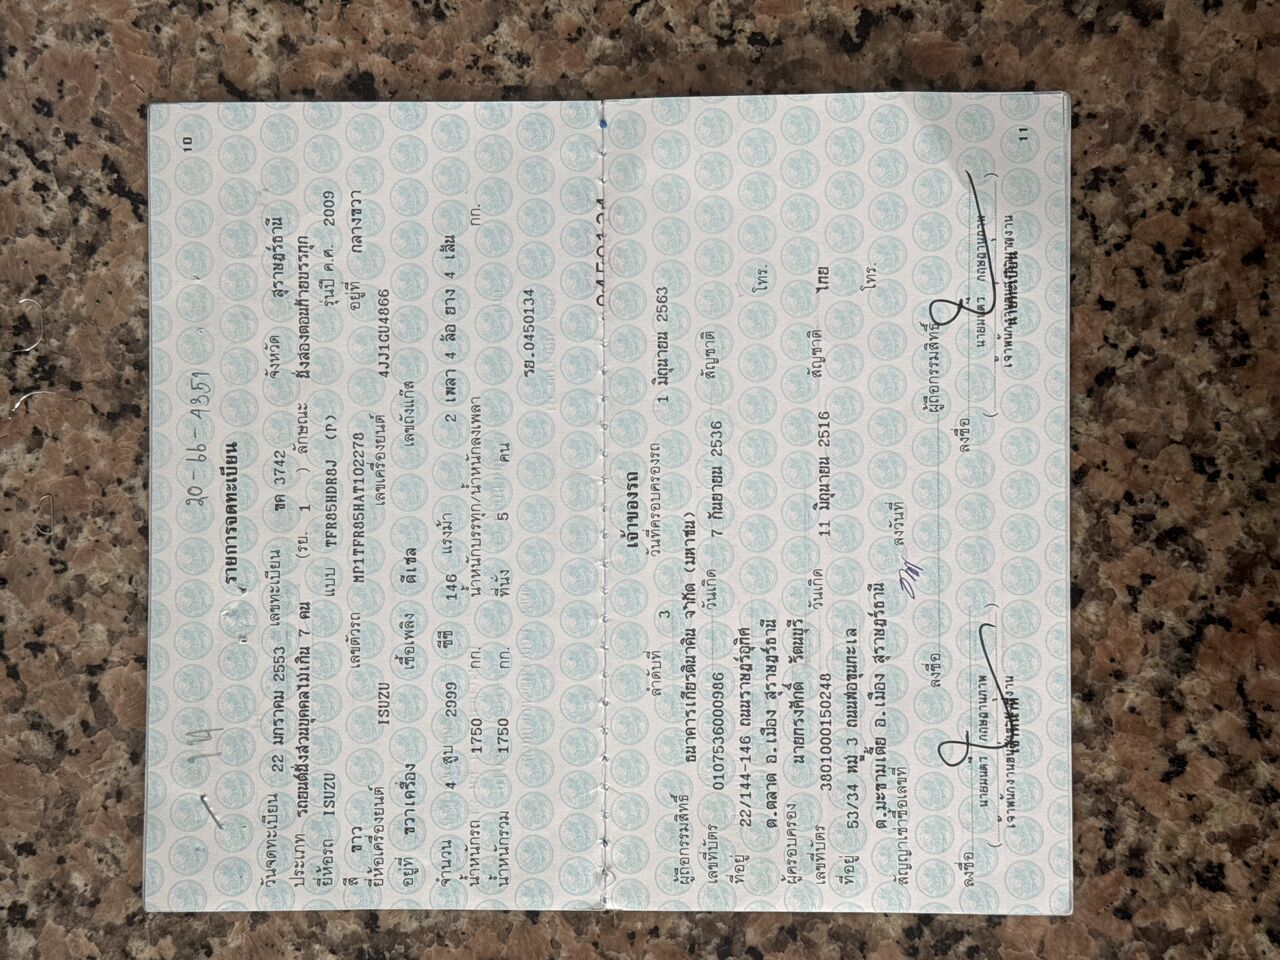 20-66-4351
10
รายการจดทะเบียน
วันจดทะเบียน 22 มกราคม 2553 เลขทะเบียน ขค 3742 จังหวัด สุราษฎร์ธานี
ประเภท รถยนต์นั่งส่วนบุคคลไม่เกิน 7 คน (รย. 1 ) ลักษณะ นั่งสองตอนท้ายบรรทุก
ยี่ห้อรถ ISUZU แบบ TFR85HDR8J (P) รุ่นปี ค.ศ. 2009
สี ขาว เลขตัวรถ MP1TFR85HAT102278 อยู่ที่ กลางขวา
ยี่ห้อเครื่องยนต์ ISUZU เลขเครื่องยนต์ 4JJ1GU4866
อยู่ที่ ขวาเครื่อง เชื้อเพลิง ดีเซล เลขถังแก๊ส
จำนวน 4 สูบ 2999 ซีซี 146 แรงม้า 2 เพลา 4 ล้อ ยาง 4 เส้น
น้ำหนักรถ 1750 กก. น้ำหนักบรรทุก/น้ำหนักลงเพลา กก.
น้ำหนักรวม 1750 กก. ที่นั่ง 5 คน
รย.0450134
เจ้าของรถ
ลำดับที่ 3 วันที่ครอบครองรถ 1 มิถุนายน 2563
ผู้ถือกรรมสิทธิ์ ธนาคารเกียรตินาคิน จำกัด (มหาชน)
เลขที่บัตร 0107536000986 วันเกิด 7 กันยายน 2536 สัญชาติ
ที่อยู่ 22/144-146 ถนนราษฎร์อุทิศ โทร.
ต.ตลาด อ.เมือง สุราษฎร์ธานี
ผู้ครอบครอง นายทรงศักดิ์ รัตนบุรี
เลขที่บัตร 3801000150248 วันเกิด 11 มิถุนายน 2516 สัญชาติ ไทย
ที่อยู่ 53/34 หมู่ 3 ถนนพ่อขุนทะเล โทร.
ต.มะขามเตี้ย อ.เมือง สุราษฎร์ธานี
สัญญาเช่าซื้อเลขที่ ลงวันที่
ลงชื่อ ผู้ถือกรรมสิทธิ์
ลงชื่อ ลงชื่อ
นายมนตรี กฤษฎานุภาพ นายมนตรี กฤษฎานุภาพ
11